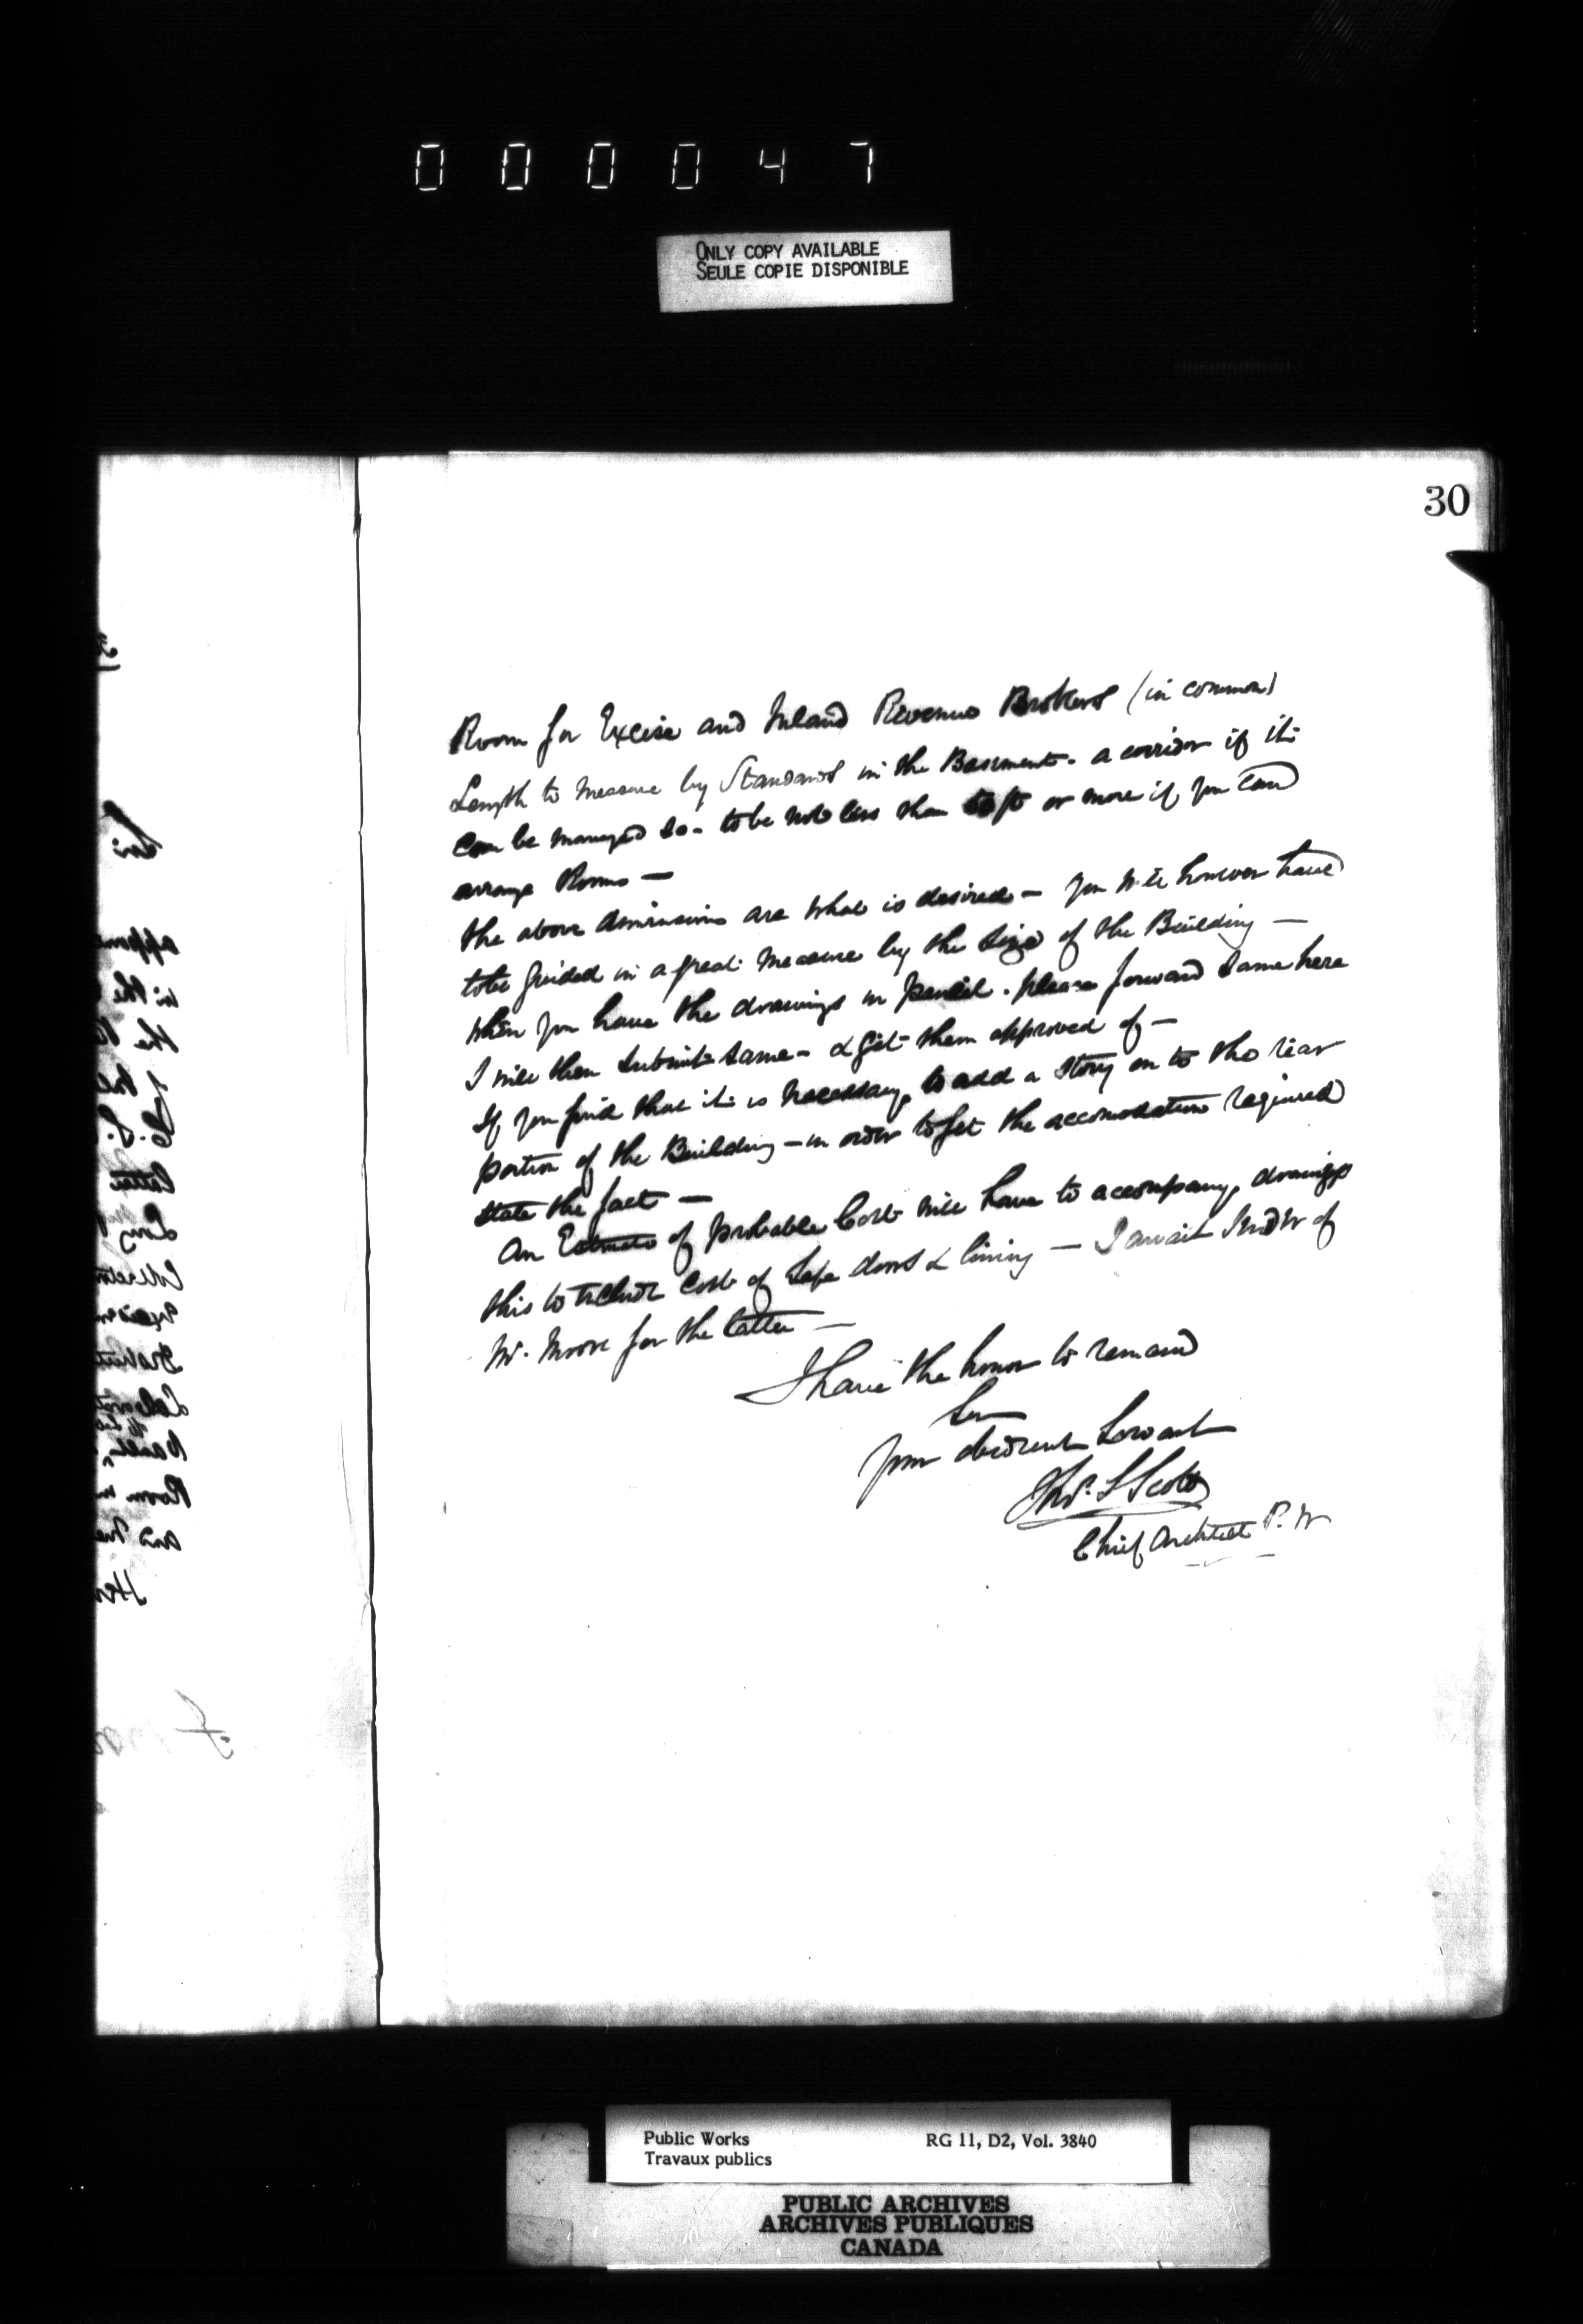 000047
ONLY COPY AVAILABLE
SEULE COPIE DISPONIBLE
30
Room for Excise and Inland Revenue Brokers (in common)
Length to measure by Standards in the Basement. a corridor if it
can be managed so - to be not less than ft or more if you can
arrange Rooms —
the above dimensions are what is desired — you will however have
to be guided in a great measure by the size of the Building —
when you have the drawings in pencil. please forward same here
I will then submit same - & get them approved of —
If you find that it is necessary to add a story on to the rear
portion of the Building — in order to get the accomodation required
state the fact —
An Estimate of probable Cost will have to accompany drawings
this to include cost of Safe doors & lining — I await of
Mr. Moore for the latter —
I have the honor to remain
Sir
your obedient Servant
Thos. S Scott
Chief Architect P. W
Public Works
Travaux publics
RG 11, D2, Vol. 3840
PUBLIC ARCHIVES
ARCHIVES PUBLIQUES
CANADA